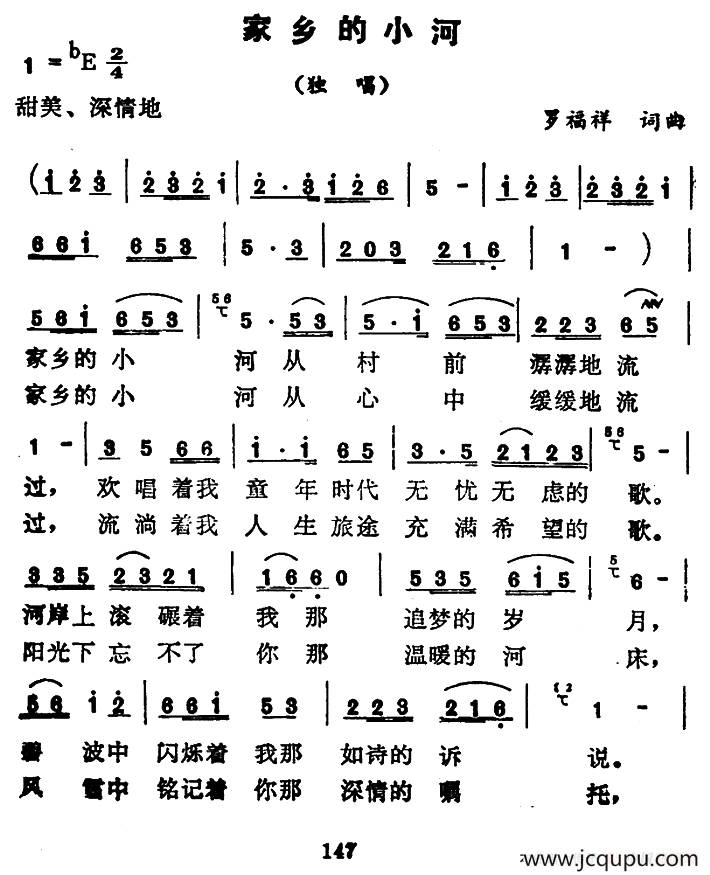 家乡的小河
1=♭E 2/4
（独 唱）
甜美、深情地
罗福祥 词曲
(i̇ 2̇ 3̇ | 2̇ 3̇ 2̇ i̇ | 2̇ · 3̇ i̇ 2̇ 6 | 5 - | i̇ 2̇ 3̇ | 2̇ 3̇ 2̇ i̇ |
6 6 i̇ 6 5 3 | 5 · 3 | 2 0 3 2 1 6̣ | 1 - ) |
5 6 i̇ 6 5 3 | 5 6 5 · 5 3 | 5 · i̇ 6 5 3 | 2 2 3 6 5 |
家乡的小 河从 村 前 潺潺地流
家乡的小 河从 心 中 缓缓地流
1 - | 3 5 6 6 | i̇ · i̇ 6 5 | 3 · 5 2 1 2 3 | 5 6 5 - |
过，欢唱着我 童年时代 无忧无虑的 歌。
过，流淌着我 人生旅途 充满希望的 歌。
3 3 5 2 3 2 1 | 1 6̣ 6̣ 0 | 5 3 5 6 i̇ 5 | 5 6 - |
河岸上滚 碾着 我那 追梦的岁 月，
阳光下忘 不了 你那 温暖的河 床，
5 6 i̇ 2̇ | 6 6 i̇ 5 3 | 2 2 3 2 1 6̣ | 1 - |
碧 波中 闪烁着 我那 如诗的诉 说。
风 雪中 铭记着 你那 深情的嘱 托，
147
www.jcqupu.com